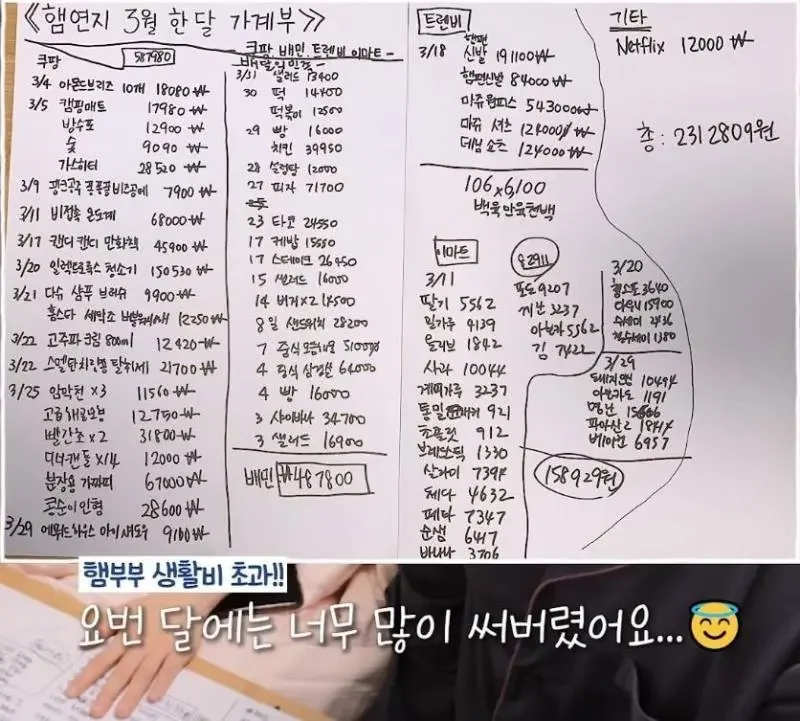 《햄연지 3월 한달 가계부》
쿠팡 587980
3/4 아몬드브리즈 10개 18080₩
3/5 캠핑매트 17980₩
방수포 12900₩
숯 9090₩
가스히터 28520₩
3/9 7900₩
3/11 비접촉 온도계 68000₩
3/17 캔디캔디 만화책 45900₩
3/20 일렉트로룩스 청소기 150530₩
3/21 다슈 샴푸 브러쉬 9900₩
홈스타 세탁조 12250₩
3/22 고주파 크림 800ml 12420₩
3/22 탈취제 21700₩
3/25 암막천 ×3 11560₩
12750₩
빨간초 ×2 31800₩
디너캔들 ×14 12000₩
67000₩
콩순이 인형 28600₩
3/29 에뛰드하우스 아이섀도우 9100₩
쿠팡 배민, 트렌비 이마트 -
배달의민족 -
3/31 샐러드 13400
30 떡 14400
떡볶이 12500
29 빵 16000
치킨 39950
28 설렁탕 12000
27 피자 71700
23 타코 24550
17 케밥 15550
17 스테이크 26450
15 샐러드 16000
14 버거×2 14500
8일 샌드위치 28200
7 중식 51000
4 중식 64000
4 빵 16000
3 34700
3 샐러드 16900
배민 ₩487800
트렌비
3/18 햄편 신발 191100₩
햄편신발 84000₩
마쥬원피스 543000₩
마쥬 셔츠 124000₩
데님쇼츠 124000₩
106×6,100
백육만육천백
이마트
3/11
딸기 5562
밀가루 4139
올리브 1842
사과 10044
계피가루 3237
통밀 921
초플릿 912
브레드스틱 1330
살라미 7394
체다 4632
페타 7347
순샘 6417
바나나 3706
포도 9207
3237
아보카도 5562
김 7422
3/20
3640
다우니 15900
수세미 2436
1380
3/29
10494
아보카도 1191
명란 15666
베이컨 6957
158929원
기타
Netflix 12000₩
총 : 2312809원
햄부부 생활비 초과!!
요번 달에는 너무 많이 써버렸어요...